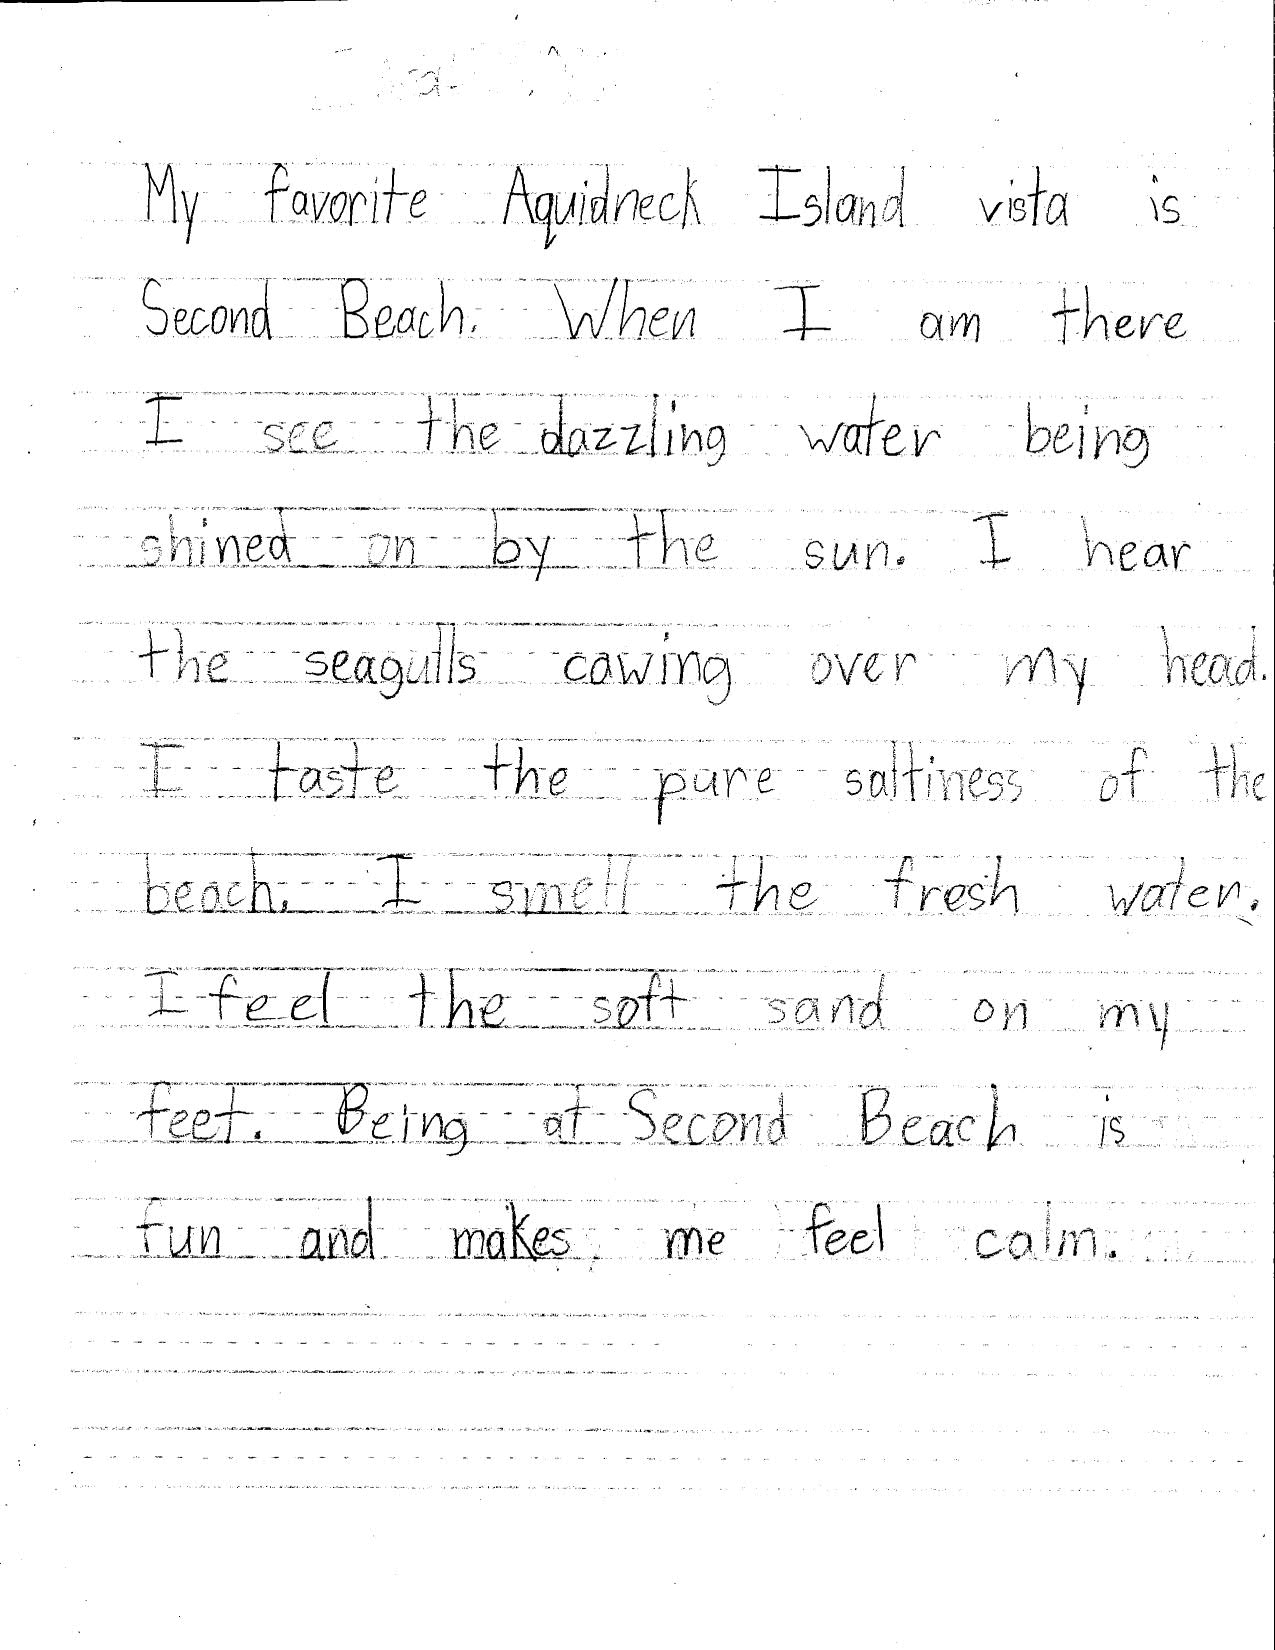 My favorite Aquidneck Island vista is
Second Beach. When I am there
I see the dazzling water being
shined on by the sun. I hear
the seagulls cawing over my head.
I taste the pure saltiness of the
beach. I smell the fresh water.
I feel the soft sand on my
feet. Being at Second Beach is
fun and makes me feel calm.